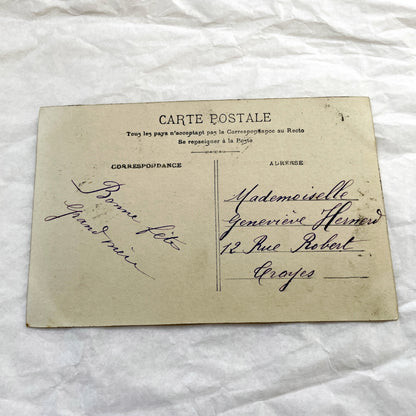 CARTE POSTALE
Tous les pays n'acceptant pas la Correspondance au Recto
Se renseigner à la Poste
CORRESPONDANCE
ADRESSE
Bonne fête
Grand mère
Mademoiselle
Geneviève
12 Rue Robert
Troyes